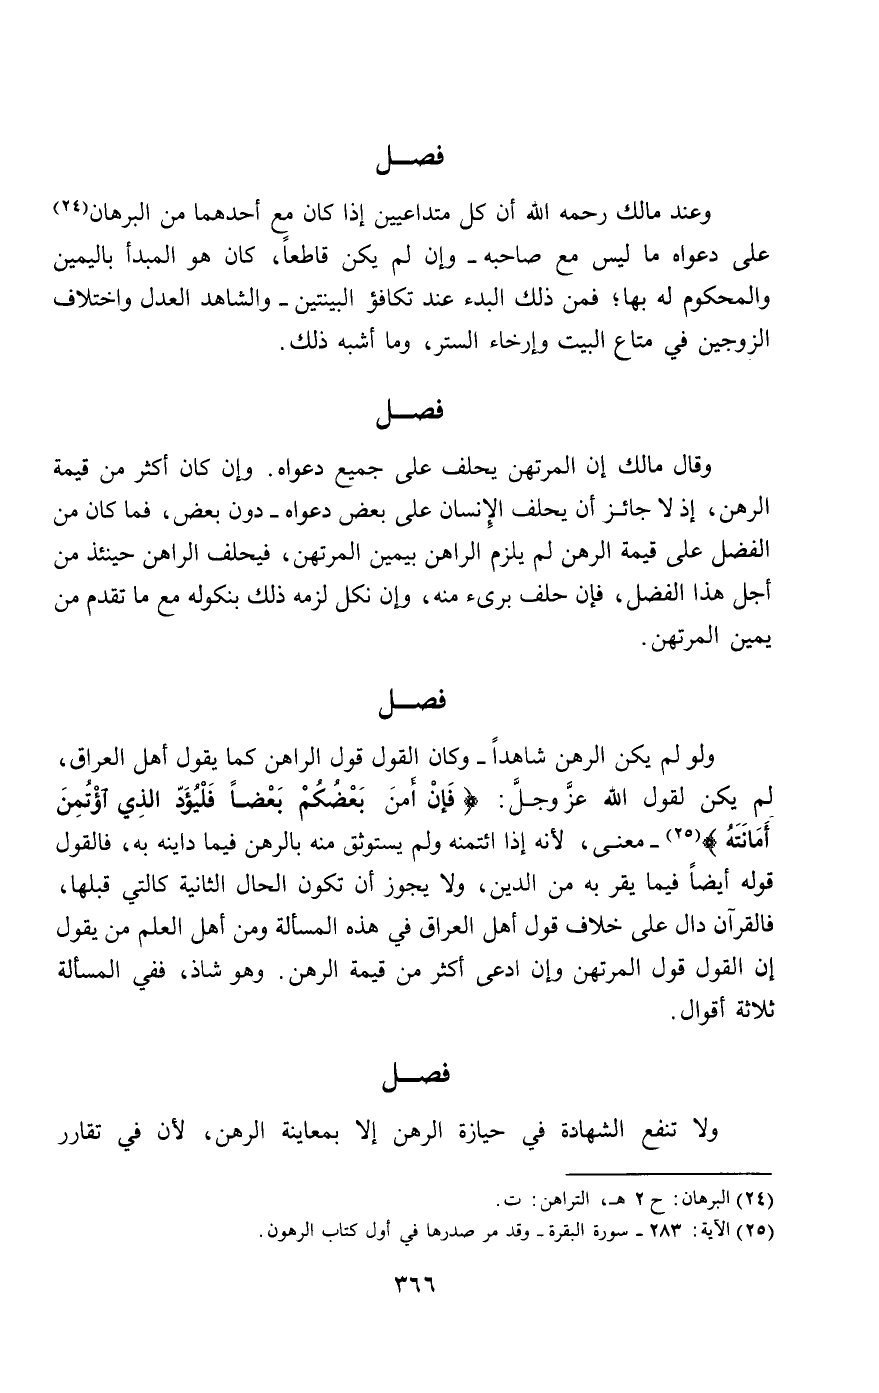 فصـــل
وعند مالك رحمه الله أن كل متداعيين إذا كان مع أحدهما من البرهان(٢٤)
على دعواه ما ليس مع صاحبه ـ وإن لم يكن قاطعاً، كان هو المبدأ باليمين
والمحكوم له بها؛ فمن ذلك البدء عند تكافؤ البينتين ـ والشاهد العدل واختلاف
الزوجين في متاع البيت وإرخاء الستر، وما أشبه ذلك.
فصـــل
وقال مالك إن المرتهن يحلف على جميع دعواه. وإن كان أكثر من قيمة
الرهن، إذ لا جائـز أن يحلف الإنسان على بعض دعواه ـ دون بعض، فما كان من
الفضل على قيمة الرهن لم يلزم الراهن بيمين المرتهن، فيحلف الراهن حينئذ من
أجل هذا الفضل، فإن حلف برىء منه، وإن نكل لزمه ذلك بنكوله مع ما تقدم من
يمين المرتهن.
فصـــل
ولو لم يكن الرهن شاهداً ـ وكان القول قول الراهن كما يقول أهل العراق،
لم يكن لقول الله عزَّ وجـلَّ: ﴿ فَإنْ أَمنَ بَعْضُكُمْ بَعْضـاً فَلْيُؤَدّ الذِي ٱؤْتُمِنَ
أَمَانَتَهُ ﴾(٢٥) ـ معنـى، لأنه إذا ائتمنه ولم يستوثق منه بالرهن فيما داينه به، فالقول
قوله أيضاً فيما يقر به من الدين، ولا يجوز أن تكون الحال الثانية كالتي قبلها،
فالقرآن دال على خلاف قول أهل العراق في هذه المسألة ومن أهل العلم من يقول
إن القول قول المرتهن وإن ادعى أكثر من قيمة الرهن. وهو شاذ، ففي المسألة
ثلاثة أقوال.
فصـــل
ولا تنفع الشهادة في حيازة الرهن إلا بمعاينة الرهن، لأن في تقارر
(٢٤) البرهان: ح ٢ هـ، التراهن: ت.
(٢٥) الآية: ٢٨٣ ـ سورة البقرة ـ وقد مر صدرها في أول كتاب الرهون.
٣٦٦